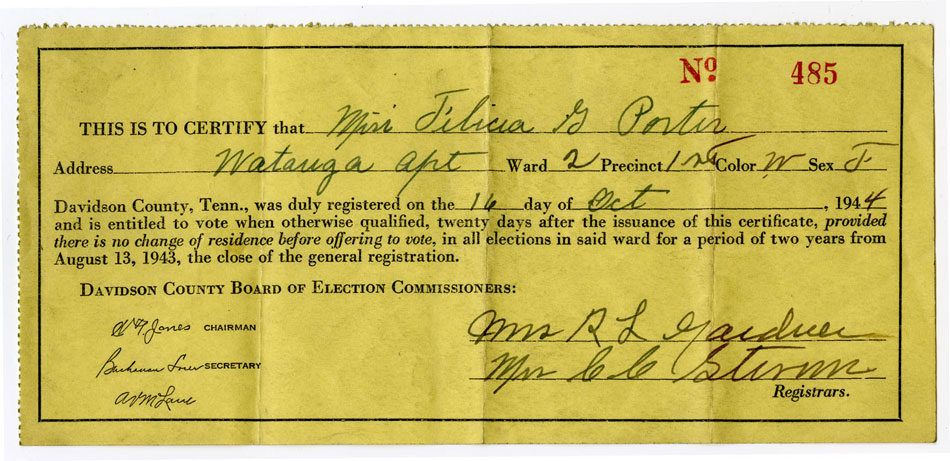 Nº 485
THIS IS TO CERTIFY that Miss Felicia G Porter
Address Watauga Apt Ward 2 Precinct 1 Color W Sex F
Davidson County, Tenn., was duly registered on the 16 day of Oct, 1944
and is entitled to vote when otherwise qualified, twenty days after the issuance of this certificate, provided
there is no change of residence before offering to vote, in all elections in said ward for a period of two years from
August 13, 1943, the close of the general registration.
DAVIDSON COUNTY BOARD OF ELECTION COMMISSIONERS:
Jones CHAIRMAN
Mrs R L Gardner
Buchanan SECRETARY
Mrs C C
Registrars.